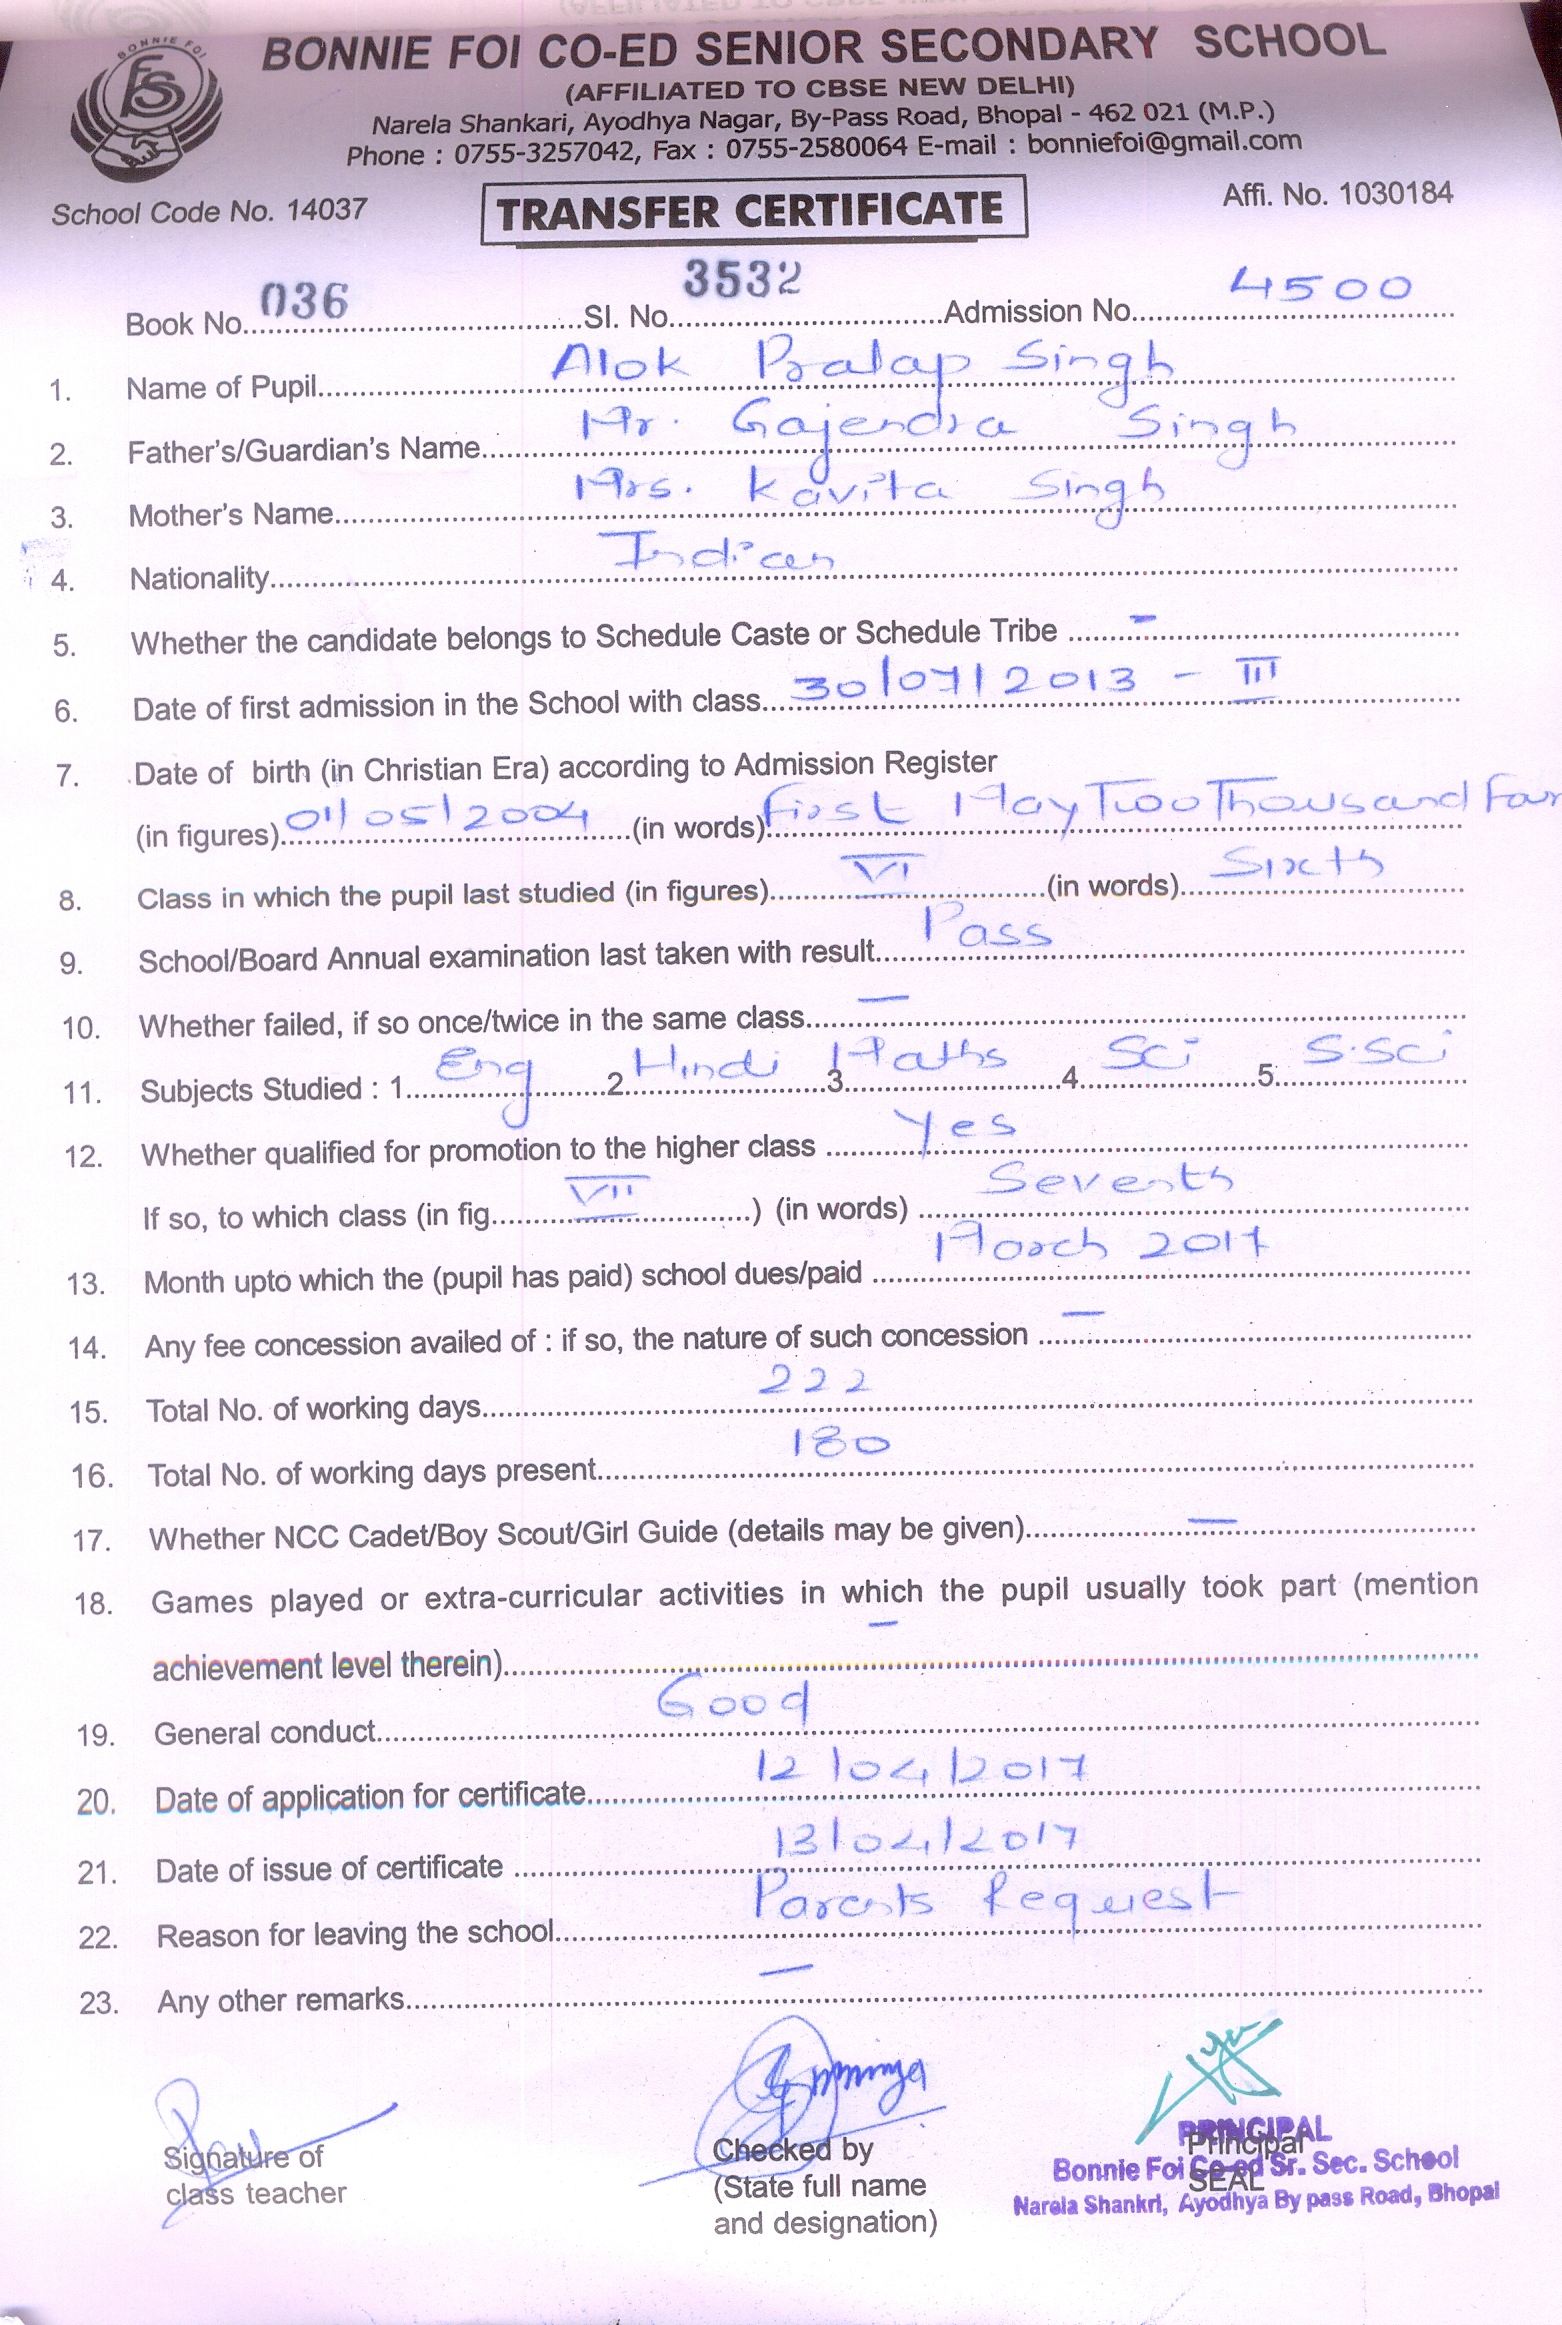 BONNIE FOI
BONNIE FOI CO-ED SENIOR SECONDARY SCHOOL
(AFFILIATED TO CBSE NEW DELHI)
Narela Shankari, Ayodhya Nagar, By-Pass Road, Bhopal - 462 021 (M.P.)
Phone : 0755-3257042, Fax : 0755-2580064 E-mail : bonniefoi@gmail.com
School Code No. 14037 TRANSFER CERTIFICATE Affi. No. 1030184
Book No. 036 Sl. No. 3532 Admission No. 4500
1. Name of Pupil Alok Pratap Singh
2. Father's/Guardian's Name Mr. Gajendra Singh
3. Mother's Name Mrs. Kavita Singh
4. Nationality Indian
5. Whether the candidate belongs to Schedule Caste or Schedule Tribe -
6. Date of first admission in the School with class 30/07/2013 - III
7. Date of birth (in Christian Era) according to Admission Register
(in figures) 01/05/2004 (in words) First May Two Thousand Four
8. Class in which the pupil last studied (in figures) VI (in words) Sixth
9. School/Board Annual examination last taken with result Pass
10. Whether failed, if so once/twice in the same class —
11. Subjects Studied : 1. Eng 2. Hindi 3. Maths 4. Sci 5. S.Sci
12. Whether qualified for promotion to the higher class Yes
If so, to which class (in fig. VII ) (in words) Seventh
13. Month upto which the (pupil has paid) school dues/paid March 2017
14. Any fee concession availed of : if so, the nature of such concession —
15. Total No. of working days 222
16. Total No. of working days present 180
17. Whether NCC Cadet/Boy Scout/Girl Guide (details may be given) —
18. Games played or extra-curricular activities in which the pupil usually took part (mention
achievement level therein) —
19. General conduct Good
20. Date of application for certificate 12/04/2017
21. Date of issue of certificate 13/04/2017
22. Reason for leaving the school Parents Request
23. Any other remarks —
Signature of
class teacher
Checked by
(State full name
and designation)
Principal
SEAL
PRINCIPAL
Bonnie Foi Co-ed Sr. Sec. School
Narela Shankri, Ayodhya By pass Road, Bhopal